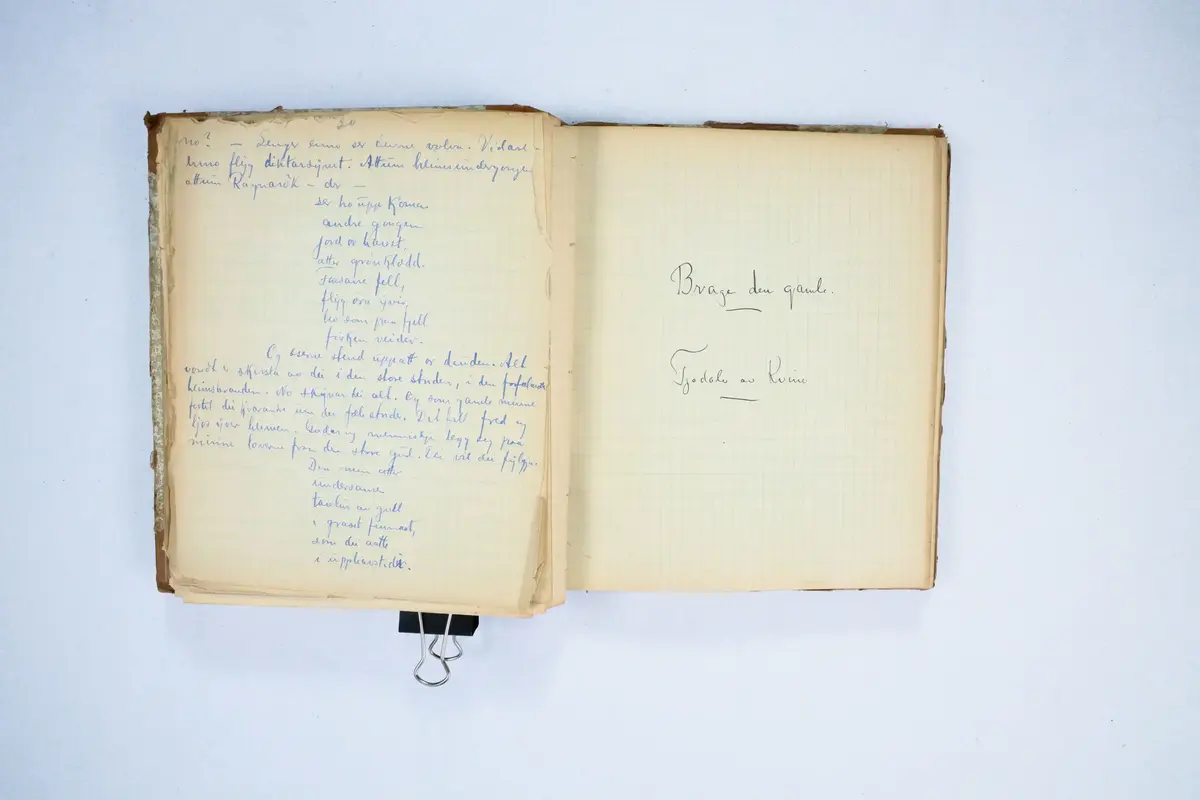 20
no? – Lenger enno ser denne volva. Vidare
enno flyg diktarsynet. Attum heimsundergongen
attum Ragnarök – der –
ser ho uppe koma
andre gongen
jord or havet,
atter grønklædd.
Fossane fell,
flyg ørn yver,
ho som paa fjell
fisken veider.
Og æserne stend uppatt or dauden. Alt
vondt er skirsla av dei i den store striden, i den
heimsbranden. No skynar dei alt. Og som gamle minne
fortel dei kvarandre um den fæle striden. Det kvil fred og
ljos yver heimen. Gudar og menneskje legg seg paa
minne lovene fraa den store gud. Dei vil dei fylgje.
Der mun atter
undersame
tavlur av gull
i graset finnast,
som dei aatte
i upphavstider.
Brage den gamle.
Tjodolv av Kvine